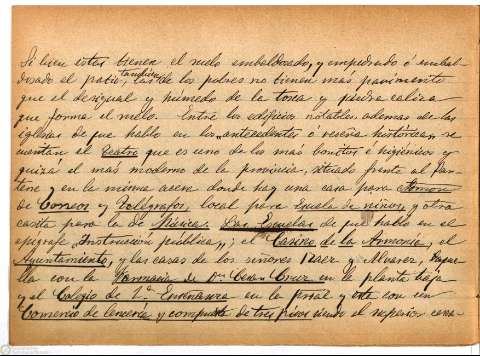 Si bien estas tienen el suelo embaldosado, y empedrado ó embal-
dosado el patio, también, las de los pobres no tienen más pavimento
que el desigual y humedo de la tosca y piedra caliza
que forma el suelo. Entre los edificios notables además de las
iglesias de que hablo en los "antecedentes ó reseña histórica," se
cuentan el Teatro que es uno de los más bonitos é higiénicos y
quizá el más moderno de la provincia, situado frente al
y en la misma acera donde hay una casa para
de Correos y Telégrafos, local para Escuela de niños, y otra
casita para la de Música. Las Escuelas de que hablo en el
epígrafe "Instrucción pública"; el Casino de la Armonía, el
Ayuntamiento, y las casas de los señores y Alvarez, aque-
lla con la Farmacia de D. Cesar Cruz en la planta baja
y el Colegio de 2ª Enseñanza en la pral y este con un
Comercio de lencería y compuesto de tres pisos siendo el superior